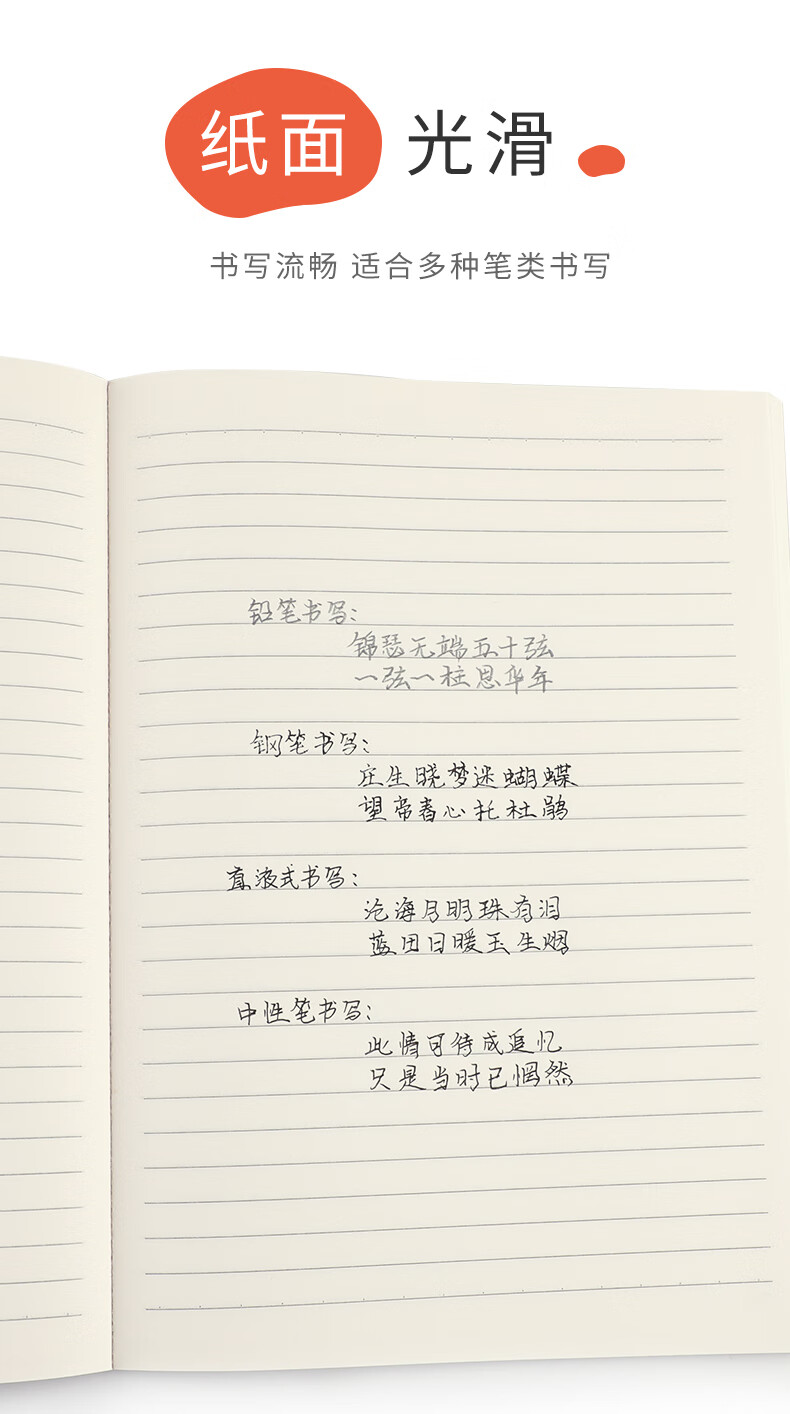 纸面 光滑
书写流畅 适合多种笔类书写
铅笔书写:
锦瑟无端五十弦
一弦一柱思华年
钢笔书写:
庄生晓梦迷蝴蝶
望帝春心托杜鹃
直液式书写:
沧海月明珠有泪
蓝田日暖玉生烟
中性笔书写:
此情可待成追忆
只是当时已惘然